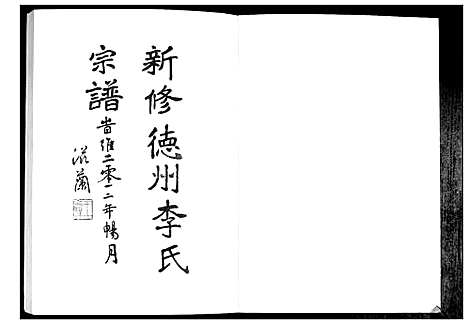 新修德州李氏
宗譜
時維二零一二年暢月
滋蘭